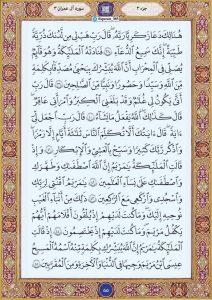 جزء ۳
سورهٔ آل عمران ۳
هُنَالِكَ دَعَا زَكَرِيَّا رَبَّهُ قَالَ رَبِّ هَبْ لِي مِن لَّدُنكَ ذُرِّيَّةً
طَيِّبَةً إِنَّكَ سَمِيعُ الدُّعَاءِ ﴿٣٨﴾ فَنَادَتْهُ الْمَلَائِكَةُ وَهُوَ قَائِمٌ
يُصَلِّي فِي الْمِحْرَابِ أَنَّ اللَّهَ يُبَشِّرُكَ بِيَحْيَىٰ مُصَدِّقًا بِكَلِمَةٍ
مِّنَ اللَّهِ وَسَيِّدًا وَحَصُورًا وَنَبِيًّا مِّنَ الصَّالِحِينَ ﴿٣٩﴾ قَالَ رَبِّ
أَنَّىٰ يَكُونُ لِي غُلَامٌ وَقَدْ بَلَغَنِيَ الْكِبَرُ وَامْرَأَتِي عَاقِرٌ
قَالَ كَذَٰلِكَ اللَّهُ يَفْعَلُ مَا يَشَاءُ ﴿٤٠﴾ قَالَ رَبِّ اجْعَل لِّي
آيَةً قَالَ آيَتُكَ أَلَّا تُكَلِّمَ النَّاسَ ثَلَاثَةَ أَيَّامٍ إِلَّا رَمْزًا
وَاذْكُر رَّبَّكَ كَثِيرًا وَسَبِّحْ بِالْعَشِيِّ وَالْإِبْكَارِ ﴿٤١﴾ وَإِذْ
قَالَتِ الْمَلَائِكَةُ يَا مَرْيَمُ إِنَّ اللَّهَ اصْطَفَاكِ وَطَهَّرَكِ
وَاصْطَفَاكِ عَلَىٰ نِسَاءِ الْعَالَمِينَ ﴿٤٢﴾ يَا مَرْيَمُ اقْنُتِي لِرَبِّكِ
وَاسْجُدِي وَارْكَعِي مَعَ الرَّاكِعِينَ ﴿٤٣﴾ ذَٰلِكَ مِنْ أَنبَاءِ الْغَيْبِ
نُوحِيهِ إِلَيْكَ وَمَا كُنتَ لَدَيْهِمْ إِذْ يُلْقُونَ أَقْلَامَهُمْ أَيُّهُمْ
يَكْفُلُ مَرْيَمَ وَمَا كُنتَ لَدَيْهِمْ إِذْ يَخْتَصِمُونَ ﴿٤٤﴾ إِذْ قَالَتِ
الْمَلَائِكَةُ يَا مَرْيَمُ إِنَّ اللَّهَ يُبَشِّرُكِ بِكَلِمَةٍ مِّنْهُ اسْمُهُ الْمَسِيحُ
عِيسَى ابْنُ مَرْيَمَ وَجِيهًا فِي الدُّنْيَا وَالْآخِرَةِ وَمِنَ الْمُقَرَّبِينَ ﴿٤٥﴾
۵۵